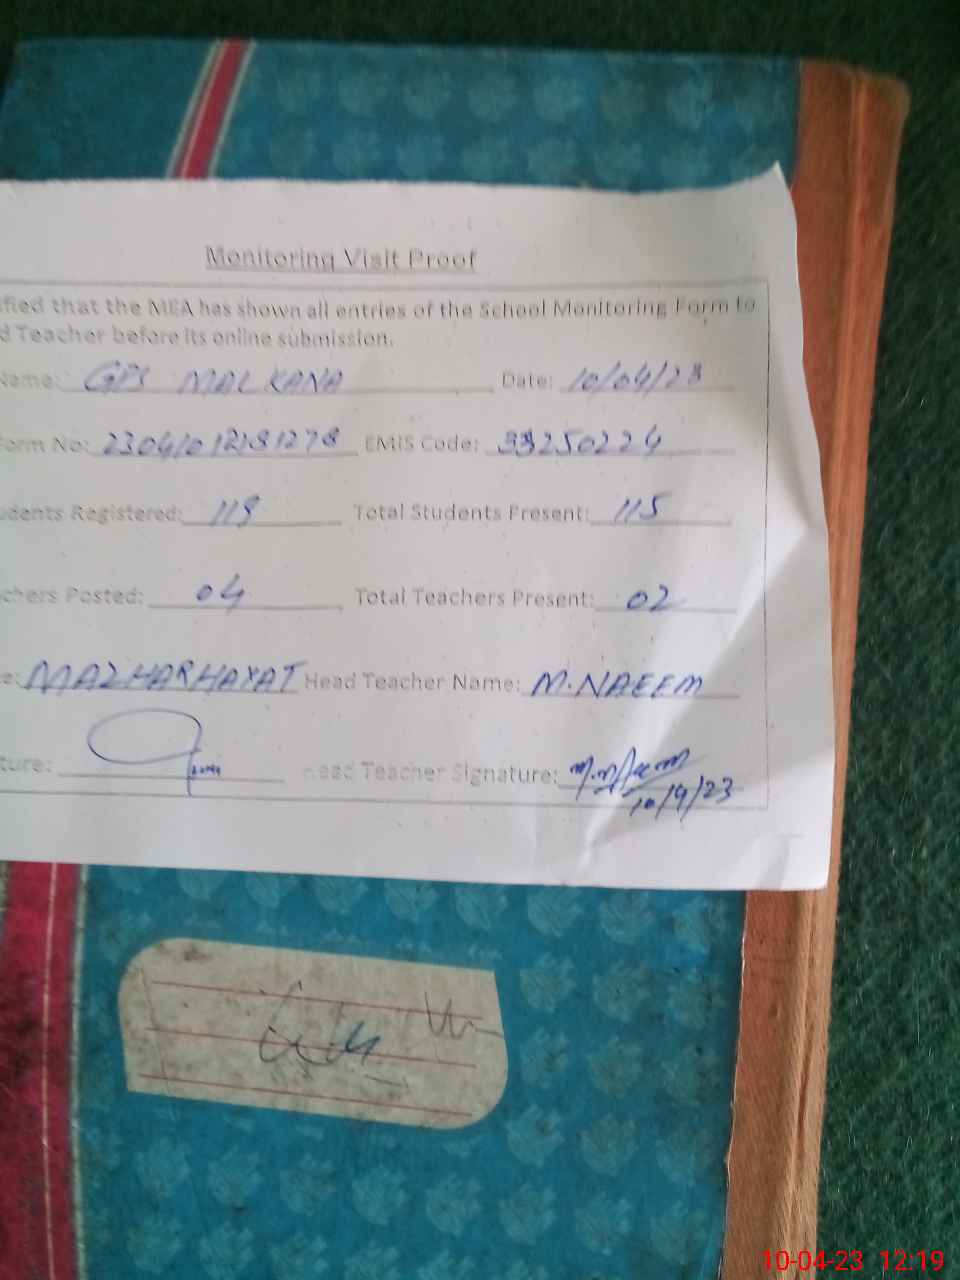 Monitoring Visit Proof
ified that the MEA has shown all entries of the School Monitoring Form to
d Teacher before its online submission.
Name: GPS MALKANA Date: 10/04/23
Form No: 23041012181278 EMIS Code: 33250224
udents Registered: 119 Total Students Present: 115
chers Posted: 04 Total Teachers Present: 02
e: MAZHAR HAYAT Head Teacher Name: M.NAEEM
ture: Head Teacher Signature: M.Naeem
10/4/23
10-04-23 12:19